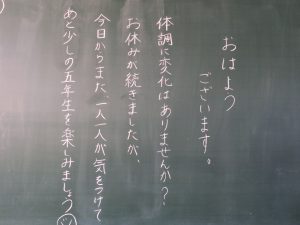 おはよう
ございます。
体調に変化はありませんか?
お休みが続きましたが、
今日からまた、一人一人が気をつけて
あと少しの五年生を楽しみましょう